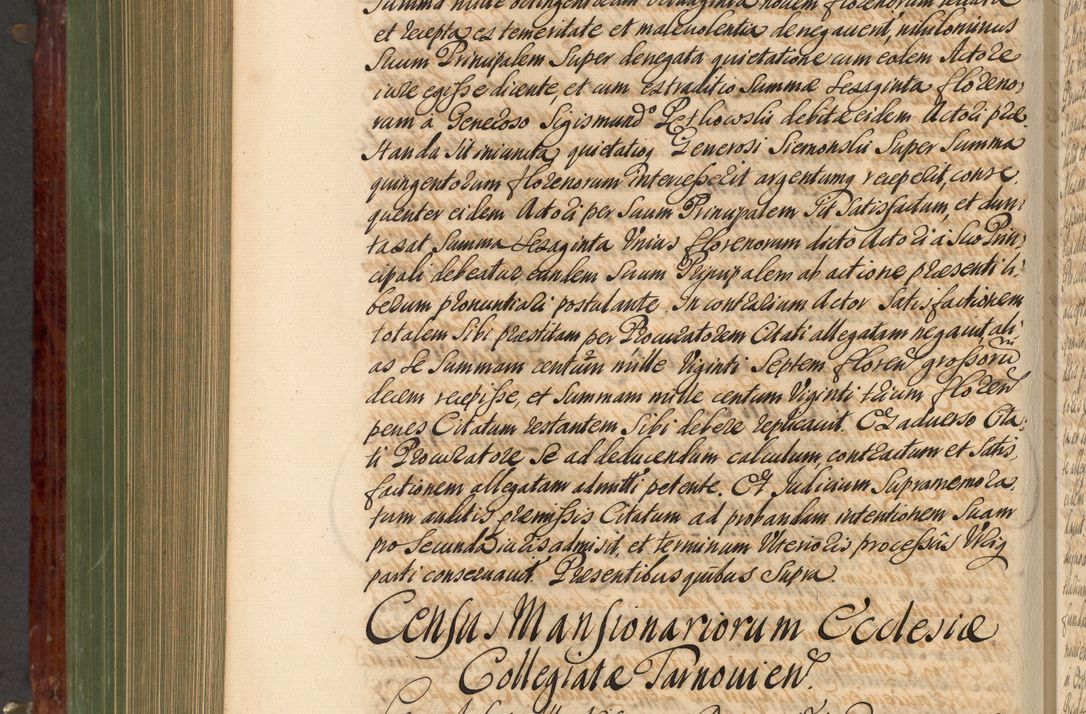 Summa mille octingentorum octuaginta novem florenorum levata
et recepta es temeritate et malevolentia denegavent, nihilominus
Suum Principalem Super denegata quietatione cum eodem Actore
iure egisse dicente, et cum extraditio Summæ sexaginta floreno-
rum a Generoso Sigismundo debitæ eidem Actori præ
standa sit iniuncta, quietatioq Generosi Siemonski Super Summa
quingentorum florenorum intercesserit argentumq receperit, conse
quenter eidem Actori per Suum Principalem Sit Satisfactum, et dun-
taxat Summa Sexaginta Unius florenorum dicto Actori a Suo Prin-
cipali debeatur, eundem Suum Principalem ab actione præsenti li-
berum pronuntiari postulante. In contrarium Actor Satisfactionem
totalem Sibi præstitam per Procuratorem Citati allegatam negavit ali-
as Se Summam centum mille Viginti Septem floren grossoru
decem recepisse, et Summam mille centum Viginti trium floren
penes Citatum restantem Sibi debere replicavit. Ex adverso Cita-
ti Procuratore Se ad deducendum calculum, contractum et Satis
factionem allegatam admitti petente. Et Judicium Supramemora
tum auditis præmissis Citatum ad probandam intentionem Suam
pro Secunda iuris admisit, et terminum Ulterioris processus Utriq
parti conservavit. Præsentibus quibus Supra.
Census Mansionariorum Ecclesiæ
Collegiatæ Tarnovien.